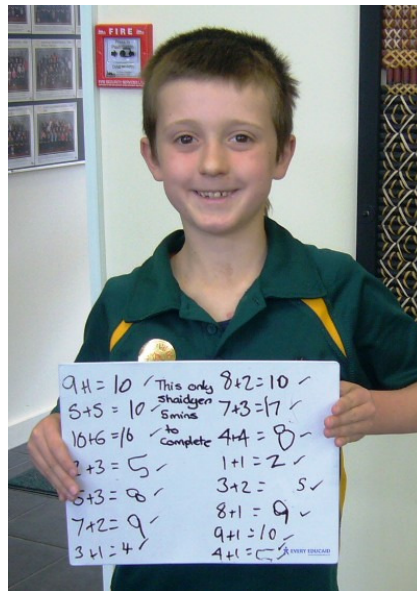 FIRE
9+1=10 ✓
5+5=10 ✓
10+6=16 ✓
2+3=5 ✓
5+3=8 ✓
7+2=9 ✓
3+1=4 ✓
This only
shaidgen
5mins
to
complete
8+2=10 ✓
7+3=17 ✓
4+4=8 ✓
1+1=2 ✓
3+2= 5 ✓
8+1=9 ✓
9+1=10 ✓
4+1=5 ✓
EVERY EDUCAID